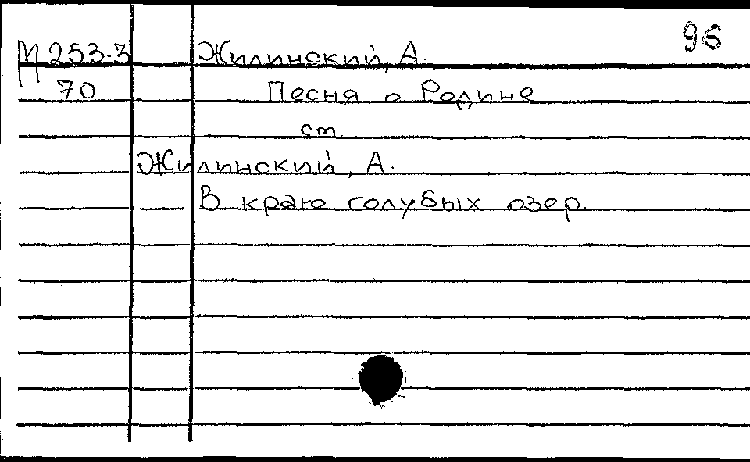 96
М 253-3 Жилинский, А.
70 Песня о Родине
ст.
Жилинский, А.
В краю голубых озер.